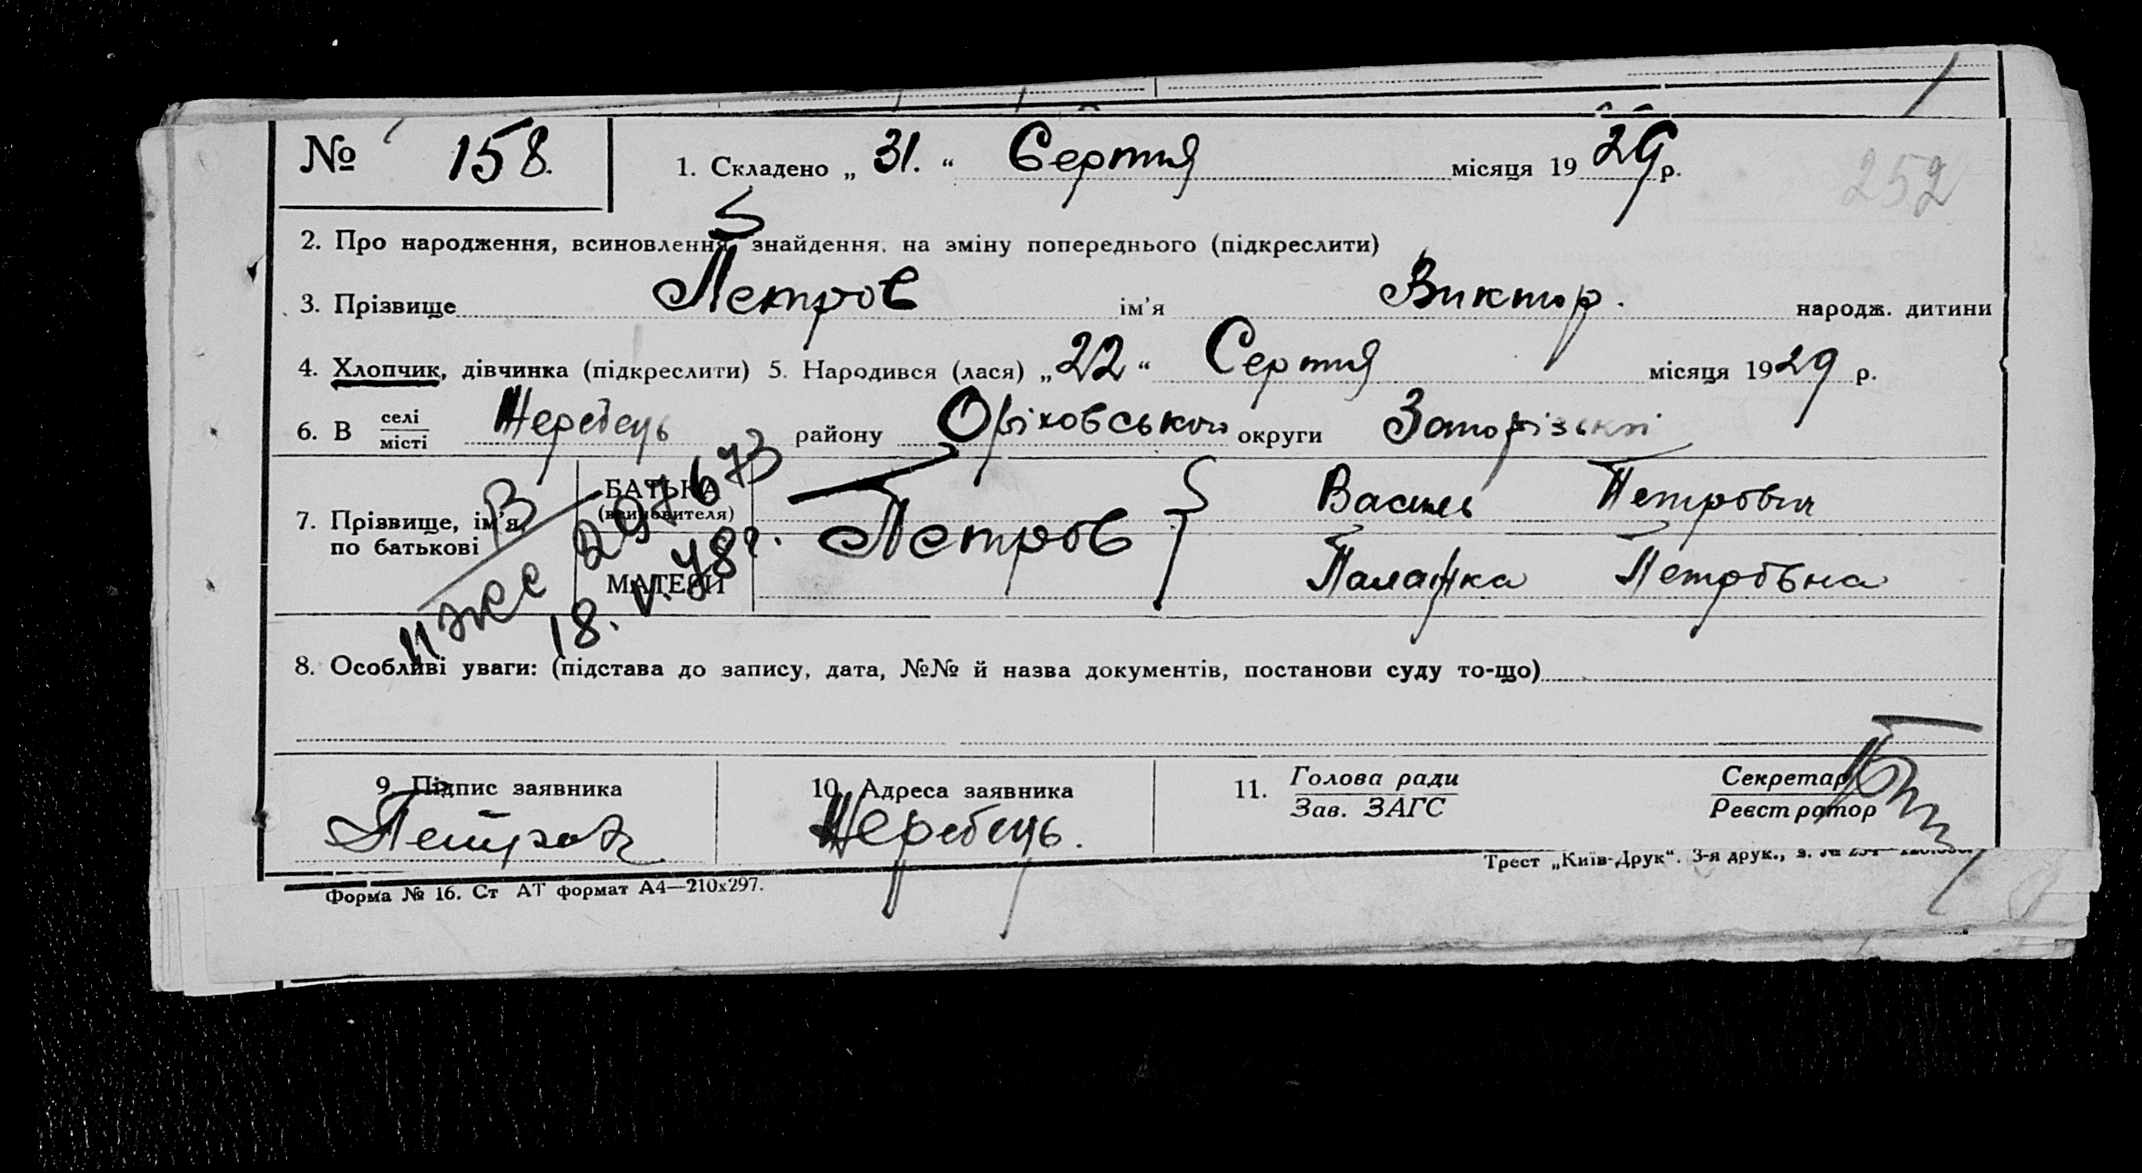 № 158. 1. Складено „ 31. “ Серпня місяця 19 29 р.
252
2. Про народження, всиновлення, знайдення, на зміну попереднього (підкреслити)
3. Прізвище Петров ім'я Виктор. народж. дитини
4. Хлопчик, дівчинка (підкреслити) 5. Народився (лася) „ 22 “ Серпня місяця 19 29 р.
6. В селі / місті Жеребець району Оріховського округи Запорізької
7. Прізвище, ім'я, по батькові
БАТЬКА (всиновителя) Петров Василь Петрович
МАТЕРИ Палажка Петровна
297673
18. V. 48г.
8. Особливі уваги: (підстава до запису, дата, №№ й назва документів, постанови суду то-що)
9. Підпис заявника 10. Адреса заявника 11. Голова ради / Зав. ЗАГС Секретар / Реєстратор
Петров Жеребець.
Форма № 16. Ст АТ формат А4—210х297.
Трест „Київ-Друк“. 3-я друк., з. №